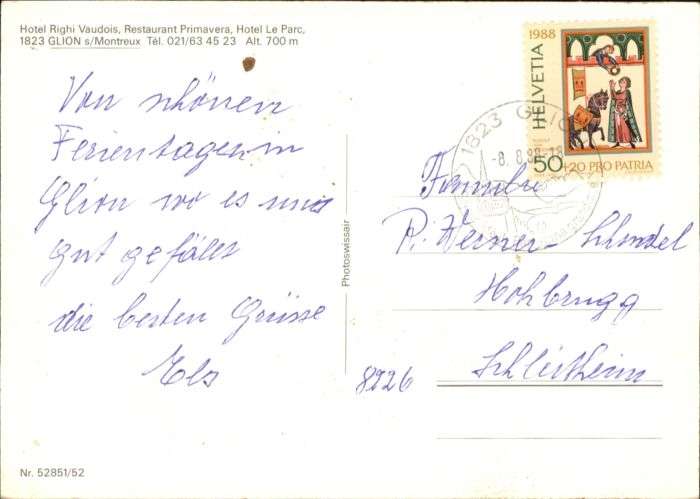 Hotel Righi Vaudois, Restaurant Primavera, Hotel Le Parc,
1823 GLION s/Montreux Tél. 021/63 45 23 Alt. 700 m
Von schönen
Ferientagen in
Glion wo es uns
gut gefällt
die besten Grüsse
Els
Nr. 52851/52
Photoswissair
1988
HELVETIA
50 +20 PRO PATRIA
1823 GLION
-8. 8.88-18
Familie
R. Werner-
Hohbrugg
8226 Schleitheim